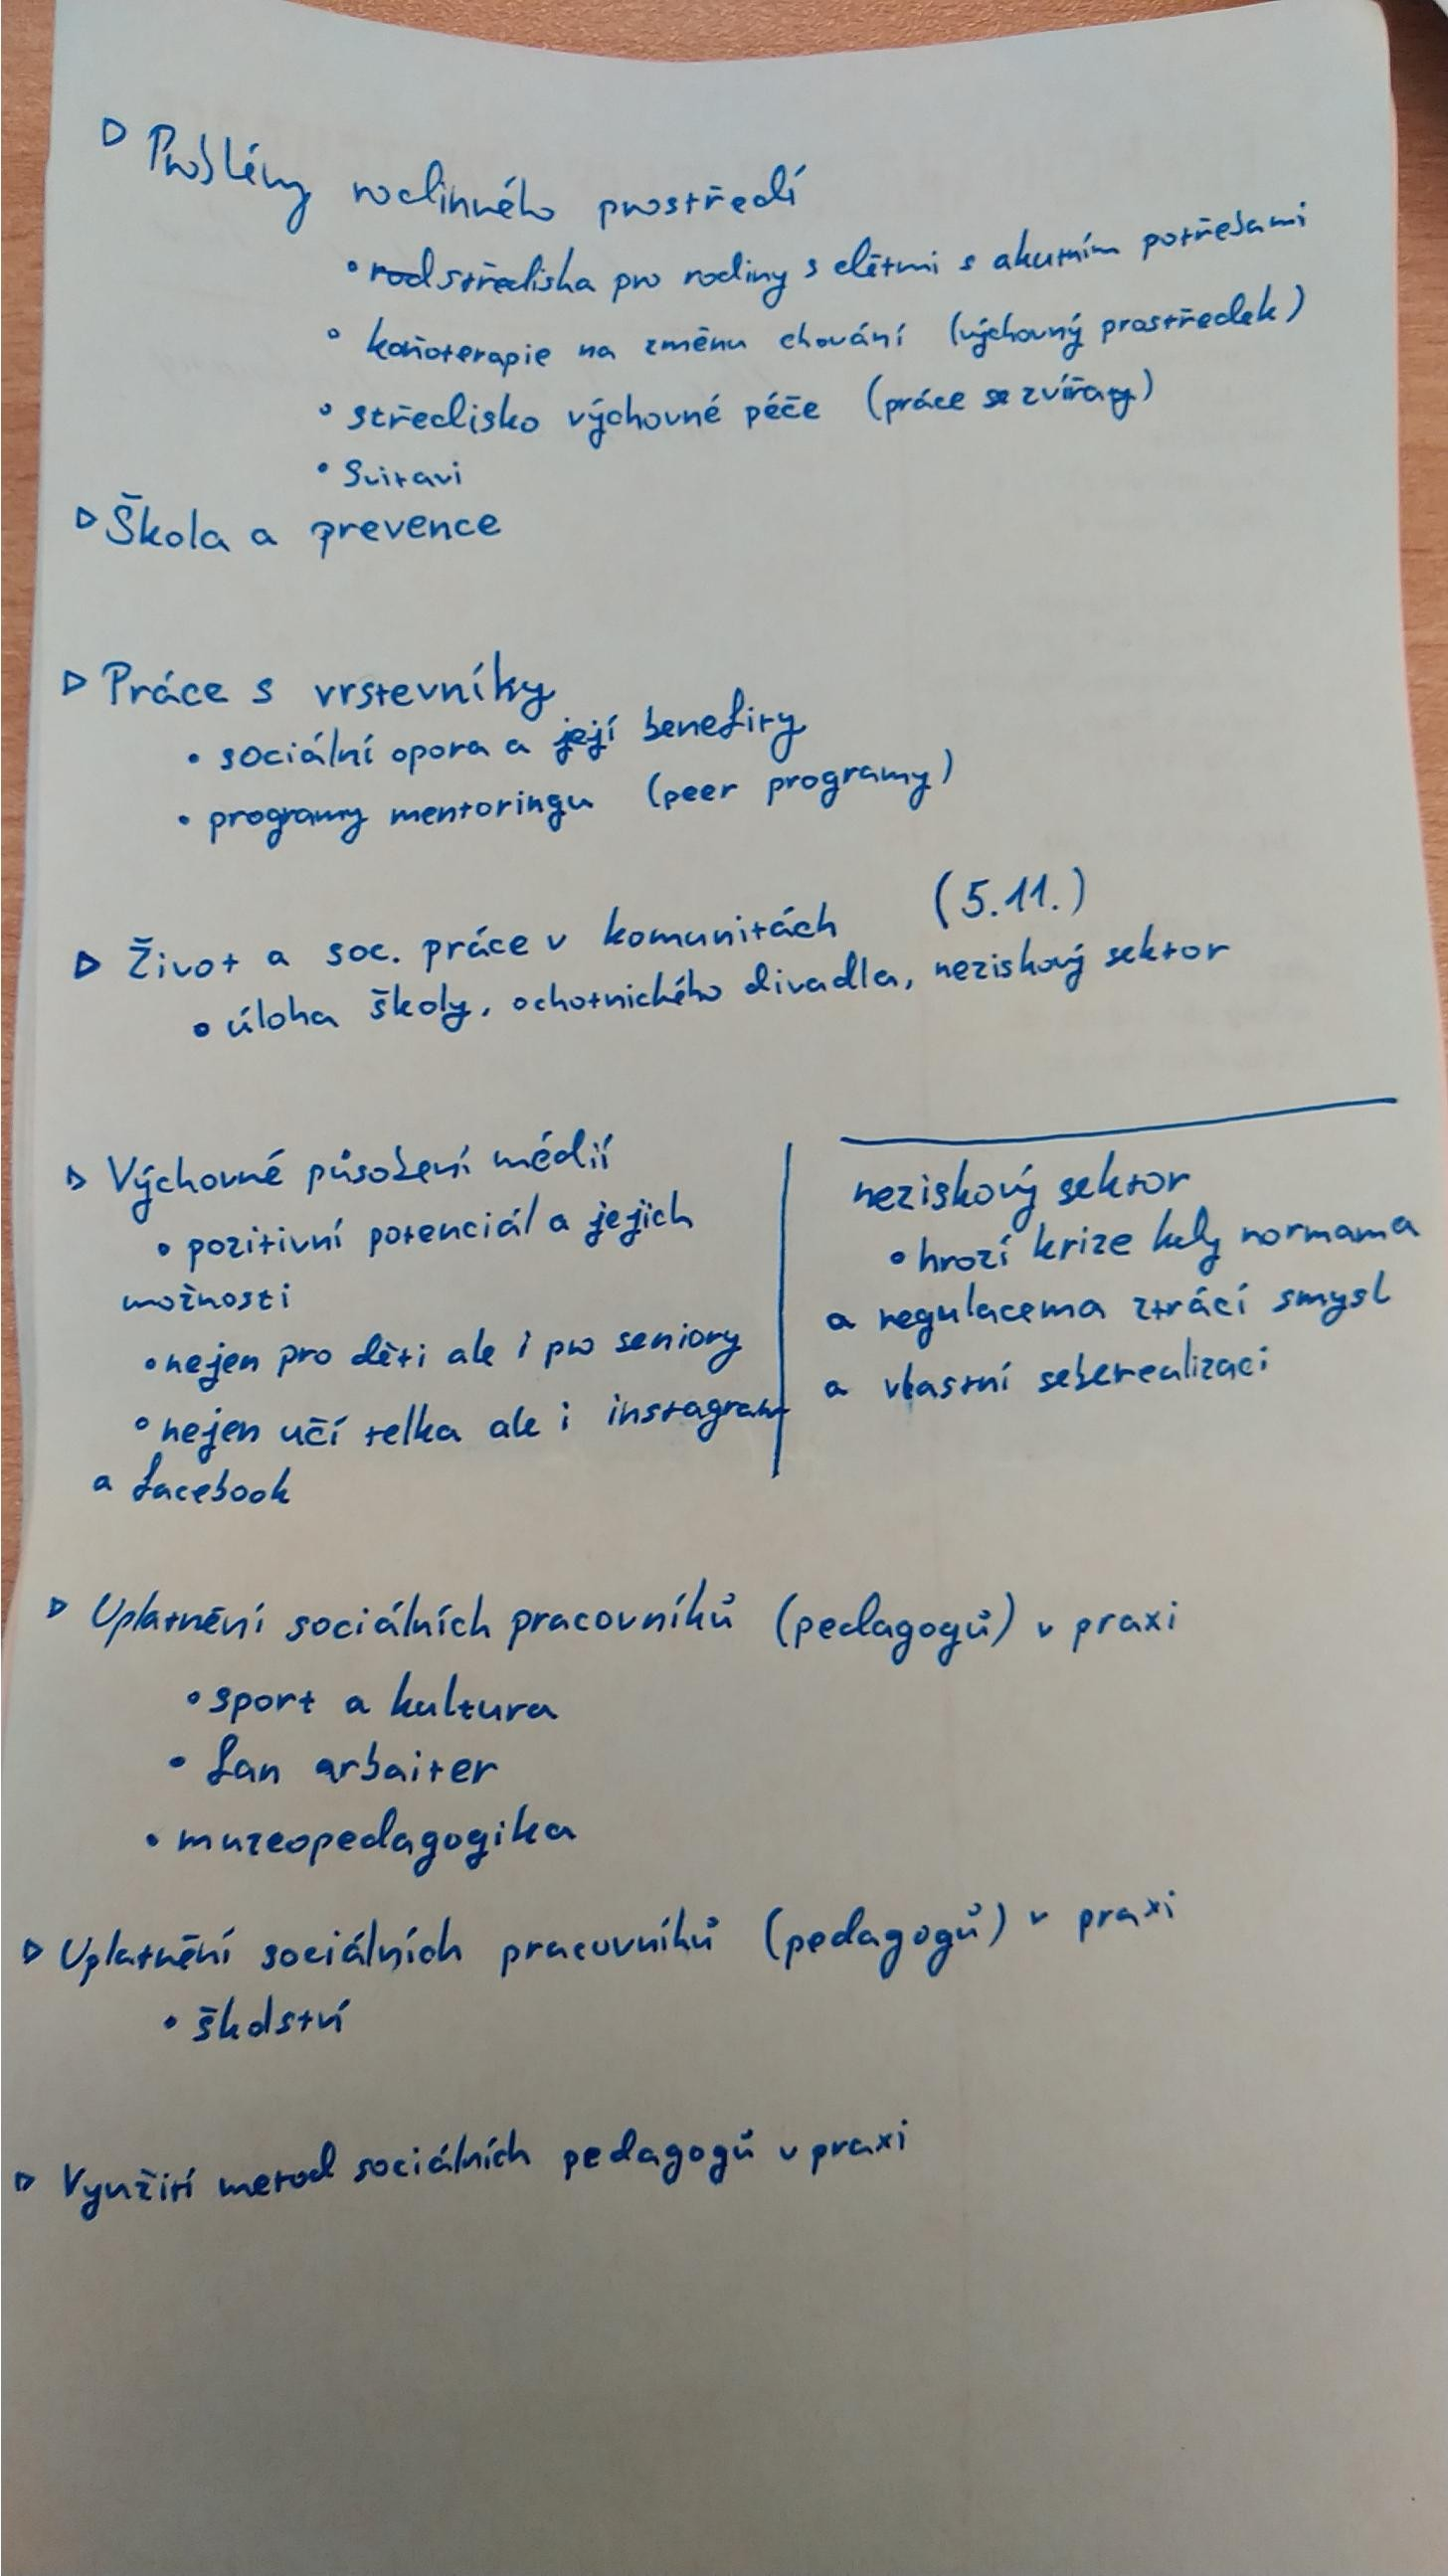 ▷ Problémy rodinného prostředí
• střediska pro rodiny s dětmi s akutním potřebami
• koňoterapie na změnu chování (výchovný prostředek)
• středisko výchovné péče (práce se zvířaty)
• Svitavi
▷ Škola a prevence
▷ Práce s vrstevníky
• sociální opora a její benefity
• programy mentoringu (peer programy)
▷ Život a soc. práce v komunitách (5.11.)
• úloha školy, ochotnického divadla, neziskový sektor
▷ Výchovné působení médií
• pozitivní potenciál a jejich
možnosti
• nejen pro děti ale i pro seniory
• nejen učí telka ale i instagram
a facebook
neziskový sektor
• hrozí krize kdy normama
a regulacema ztrácí smysl
a vlastní seberealizaci
▷ Uplatnění sociálních pracovníků (pedagogů) v praxi
• sport a kultura
• fan arbaiter
• muzeopedagogika
▷ Uplatnění sociálních pracovníků (pedagogů) v praxi
• školství
▷ Využití metod sociálních pedagogů v praxi